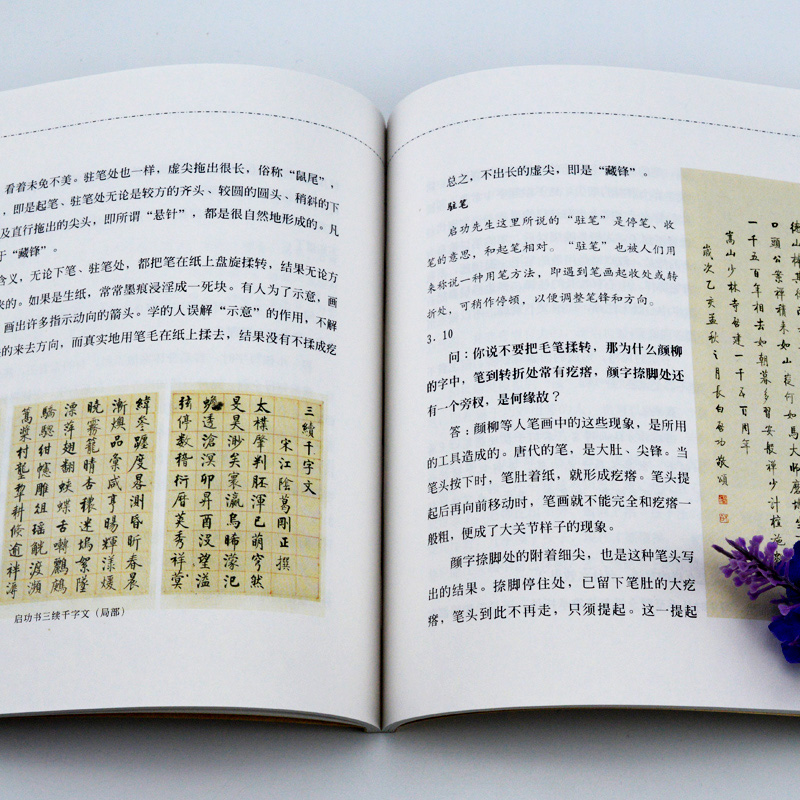 看着未免不美。驻笔处也一样，虚尖拖出很长，俗称“鼠尾”，
，即是起笔、驻笔处无论是较方的齐头、较圆的圆头、稍斜的下
及直行拖出的尖头，即所谓“悬针”，都是很自然地形成的。凡
于“藏锋”。
含义，无论下笔、驻笔处，都把笔在纸上盘旋揉转，结果无论方
块的。如果是生纸，常常墨痕浸淫成一死块。有人为了示意，画
画出许多指示动向的箭头。学的人误解“示意”的作用，不解
的来去方向，而真实地用笔毛在纸上揉去，结果没有不揉成疙
三續千字文
宋江陰葛剛正撰
太樸肇判胚渾已萌穹然
旻昊渺矣寰瀛烏晞濛汜
蟾透滄溟卯昇酉没望溢
弦停數稽衍曆荚秀祥蓂
緯参躔度晷測昏昕春晨
漸燠品彙咸亨暘輝漾煖
晓霧籠晴杏穠迷塢絮墜
漂萍翅翻蛱蝶舌囀鶊
驕驄紺幰雕組瑶觥渡瀕
蒿槳村墅犂耕候逾
启功书三续千字文（局部）
总之，不出长的虚尖，即是“藏锋”。
驻笔
启功先生这里所说的“驻笔”是停笔、收
笔的意思，和起笔相对。“驻笔”也被人们用
来称说一种用笔方法，即遇到笔画起收处或转
折处，可稍作停顿，以便调整笔锋和方向。
3. 10
问：你说不要把毛笔揉转，那为什么颜柳
的字中，笔到转折处常有疙瘩，颜字捺脚处还
有一个旁杈，是何缘故？
答：颜柳等人笔画中的这些现象，是所用
的工具造成的。唐代的笔，是大肚、尖锋。当
笔头按下时，笔肚着纸，就形成疙瘩。笔头提
起后再向前移动时，笔画就不能完全和疙瘩一
般粗，便成了大关节样子的现象。
颜字捺脚处的附着细尖，也是这种笔头写
出的结果。捺脚停住处，已留下笔肚的大疙
瘩，笔头到此不再走，只须提起。这一提起
口頭公案禅積来如山夜行如馬大師
一千五百年相去如朝暮多習安般禅少計
嵩山少林寺啓建一千五百周年
歲次乙亥孟秋之月長白启功敬頌